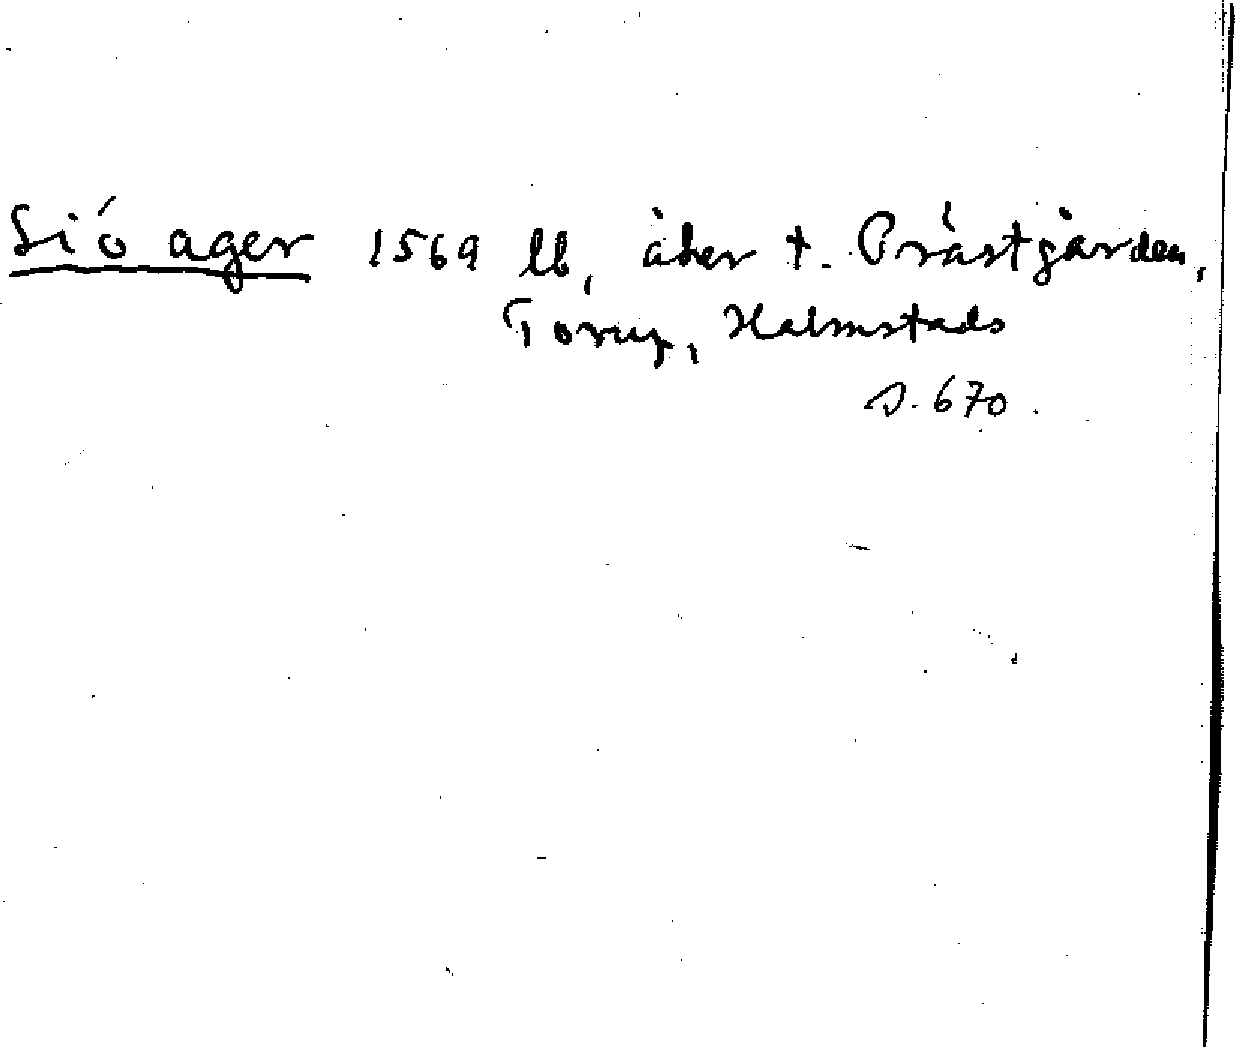 Siö ager 1569 lb, åker t. Prästgården,
Torup, Halmstads
s. 670.